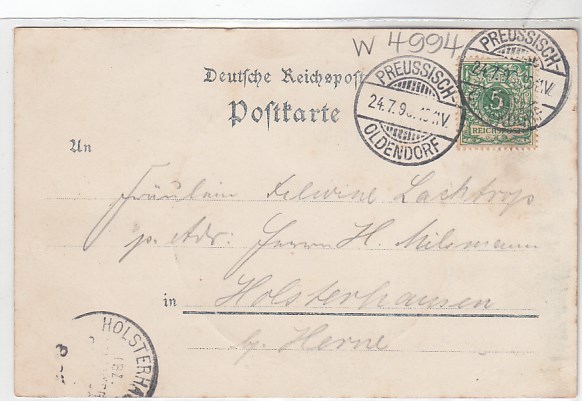 W 4994
Deutsche Reichspost
Postkarte
PREUSSISCH-
24.7.9
OLDENDORF
PREUSSISCH-
24.7.9
5
REICHSPOST
An
Fräulein Lachtrop
p. Adr: Herrn H. Milsmann
in Holsterhausen
b/ Herne
HOLSTERHA